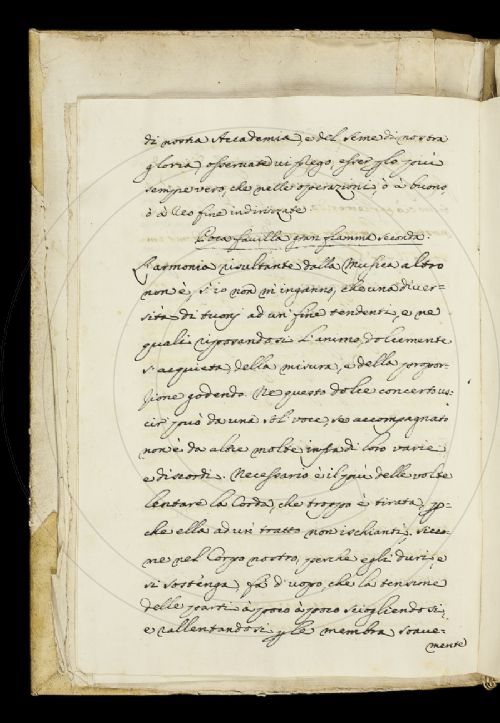 di nostra Accademia, e del seme di nostra
gloria, osservate vi prego, esser p lo più
sempre vero, che nelle operazioni, ò à buono
ò à reo fine indirizzate
Poca favilla gran fiamma seconda.
L'armonia risultante dalla Musica altro
non è, s'io non m'inganno, che una diver-
sità di tuoni ad un fine tendenti, e ne
quali riposandosi l'animo, dolcemente
s'acquieta, della misura, e della propor-
zione godendo. Ne questo dolce concerto us-
cir può da una sol voce, se accompagnato
non è da altre molte infra di loro varie
e discordi. Necessario è il più delle volte
lentare la Corda, che troppo è tirata, p-
che ella ad un tratto non ischianti. Sicco-
me nel Corpo nostro, perche egli duri, e
si sostenga, fa d'uopo, che la tensione
delle parti à poco à poco sciogliendosi,
e rallentandosi p le membra soave-
mente